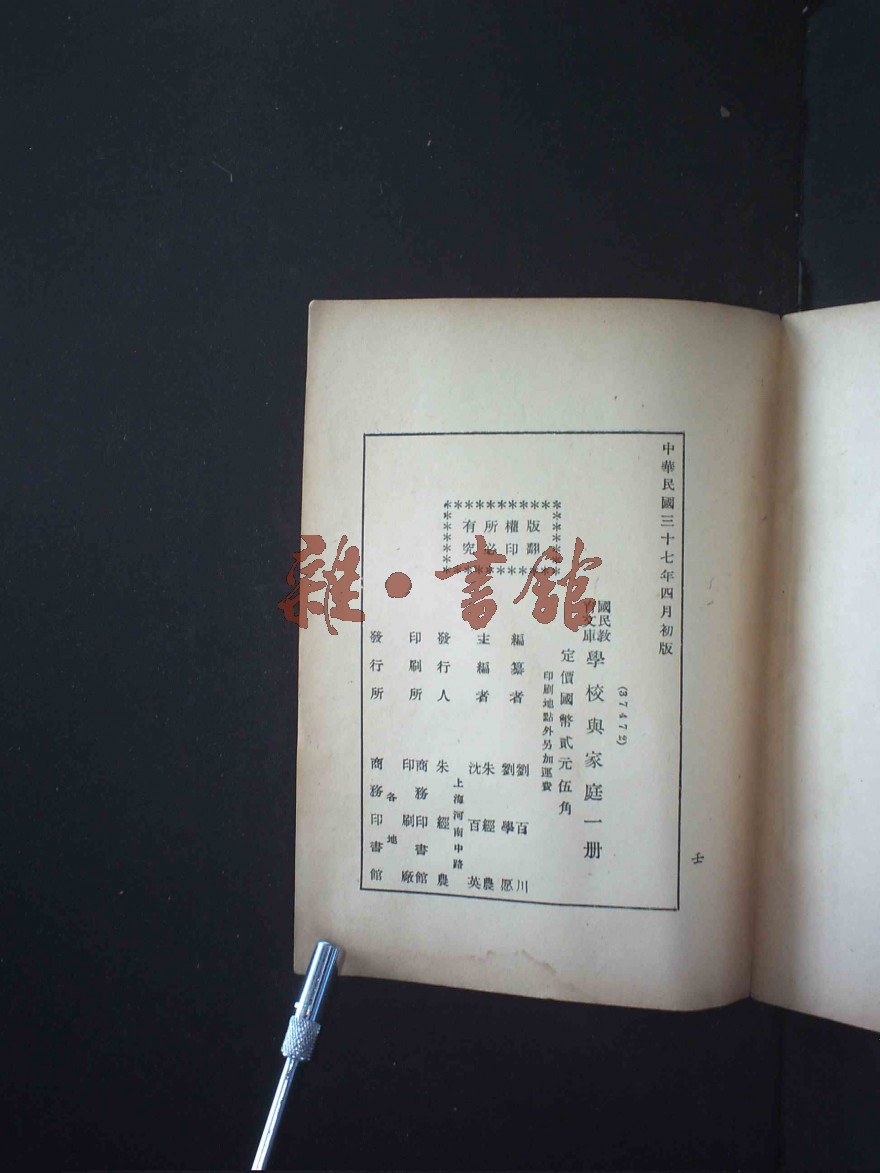 中華民國三十七年四月初版
(37472)
國民教
育文庫
學校與家庭一册
定價國幣貳元伍角
印刷地點外另加運費
版權所有
翻印必究
編纂者
劉百川
劉學愿
主編者
朱經農
沈百英
上海河南中路
發行人
朱經農
印刷所
商務印書館
印刷廠
各地
發行所
商務印書館
士
雜·書館